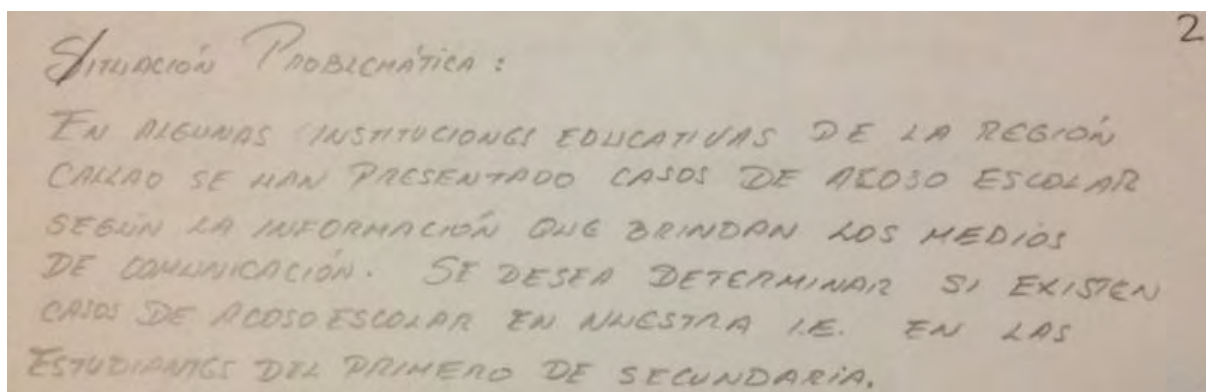 2
SITUACIÓN PROBLEMÁTICA:
EN ALGUNAS INSTITUCIONES EDUCATIVAS DE LA REGIÓN
CALLAO SE HAN PRESENTADO CASOS DE ACOSO ESCOLAR
SEGÚN LA INFORMACIÓN QUE BRINDAN LOS MEDIOS
DE COMUNICACIÓN. SE DESEA DETERMINAR SI EXISTEN
CASOS DE ACOSO ESCOLAR EN NUESTRA I.E. EN LAS
ESTUDIANTES DEL PRIMERO DE SECUNDARIA.